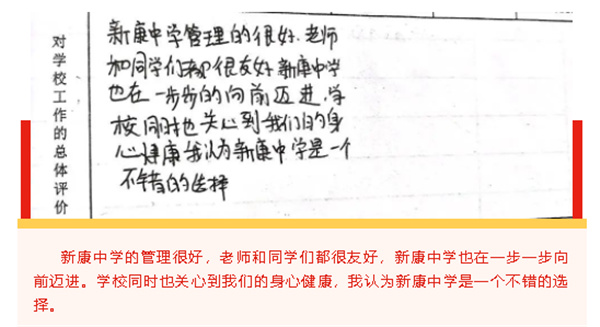 对学校工作的总体评价
新康中学管理的很好.老师
和同学们都很友好.新康中学
也在一步步的向前迈进.学
校同时也关心到我们的身
心健康 我认为新康中学是一个
不错的选择
新康中学的管理很好，老师和同学们都很友好，新康中学也在一步一步向
前迈进。学校同时也关心到我们的身心健康，我认为新康中学是一个不错的选
择。